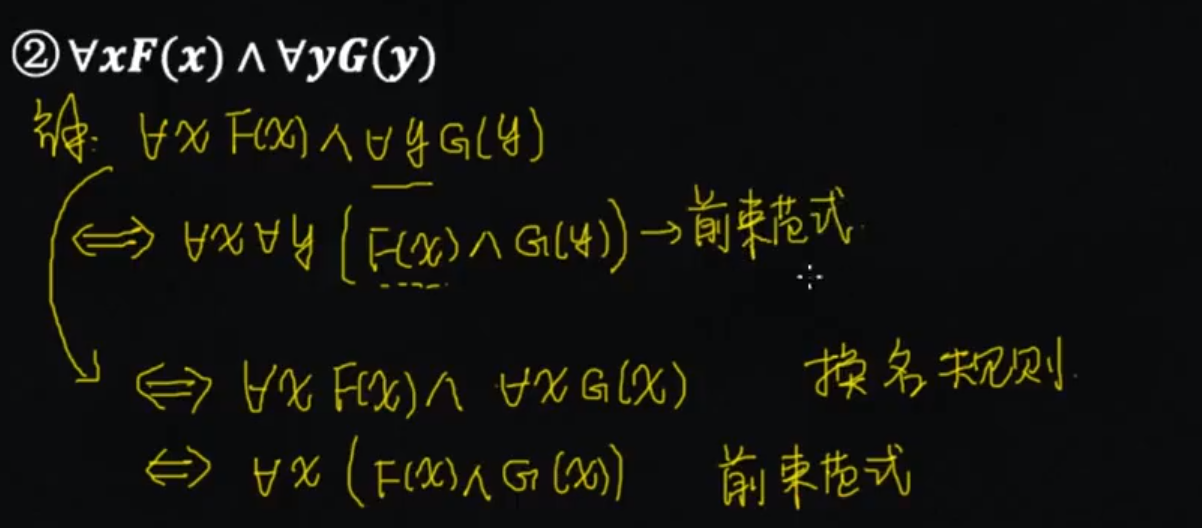 ②∀xF(x) ∧ ∀yG(y)
解: ∀x F(x) ∧ ∀y G(y)
⟺ ∀x∀y (F(x) ∧ G(y)) → 前束范式.
⟺ ∀x F(x) ∧ ∀x G(x) 换名规则.
⟺ ∀x (F(x) ∧ G(x)) 前束范式